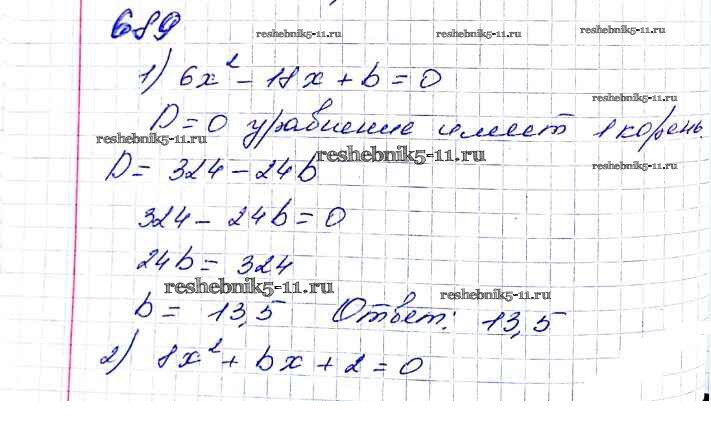 689
reshebnik5-11.ru reshebnik5-11.ru
1) 6x² - 18x + b = 0
D = 0 уравнение имеет 1 корень.
reshebnik5-11.ru reshebnik5-11.ru reshebnik5-11.ru
D = 324 - 24b
324 - 24b = 0
24b = 324
reshebnik5-11.ru reshebnik5-11.ru
b = 13,5 Ответ: 13,5
2) 8x² + bx + 2 = 0